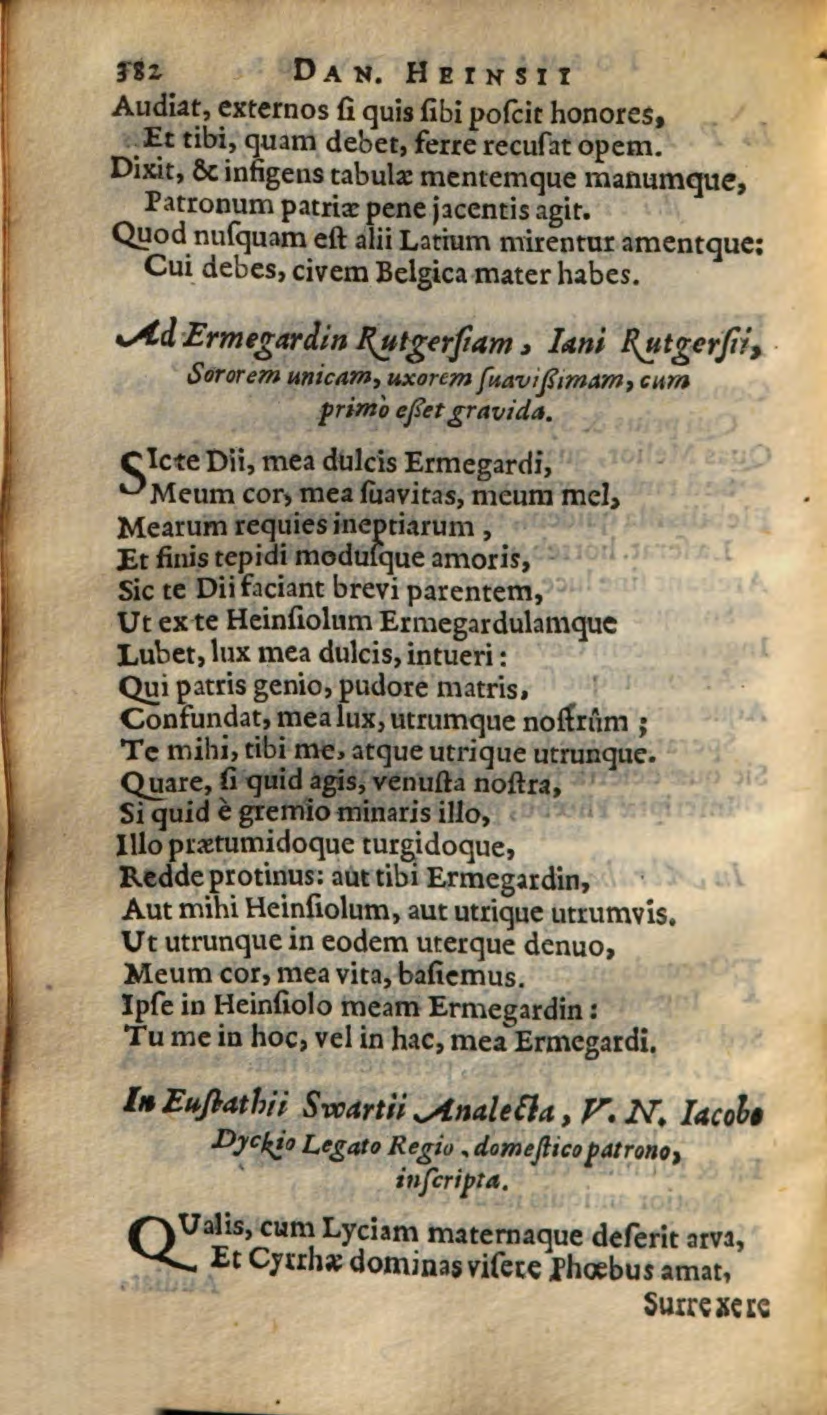 382 DAN. HEINSII
Audiat, externos ſi quis ſibi poſcit honores,
Et tibi, quam debet, ferre recuſat opem.
Dixit, & infigens tabulæ mentemque manumque,
Patronum patriæ pene jacentis agit.
Quod nuſquam eſt alii Latium mirentur amentque:
Cui debes, civem Belgica mater habes.
Ad Ermegardin Rutgerſiam, Iani Rutgerſii,
Sororem unicam, uxorem ſuavißimam, cum
primò eßet gravida.
SIc te Dii, mea dulcis Ermegardi,
Meum cor, mea ſuavitas, meum mel,
Mearum requies ineptiarum,
Et finis tepidi moduſque amoris,
Sic te Dii faciant brevi parentem,
Ut ex te Heinſiolum Ermegardulamque
Lubet, lux mea dulcis, intueri:
Qui patris genio, pudore matris,
Confundat, mea lux, utrumque noſtrûm;
Te mihi, tibi me, atque utrique utrunque.
Quare, ſi quid agis, venuſta noſtra,
Si quid è gremio minaris illo,
Illo prætumidoque turgidoque,
Redde protinus: aut tibi Ermegardin,
Aut mihi Heinſiolum, aut utrique utrumvis.
Ut utrunque in eodem uterque denuo,
Meum cor, mea vita, baſiemus.
Ipſe in Heinſiolo meam Ermegardin:
Tu me in hoc, vel in hac, mea Ermegardi.
In Euſtathii Swartii Analecta, V. N. Iacobo
Dyckio Legato Regio, domeſtico patrono,
inſcripta.
QUalis, cum Lyciam maternaque deſerit arva,
Et Cyrrhæ dominas viſere Phœbus amat,
Surrexere